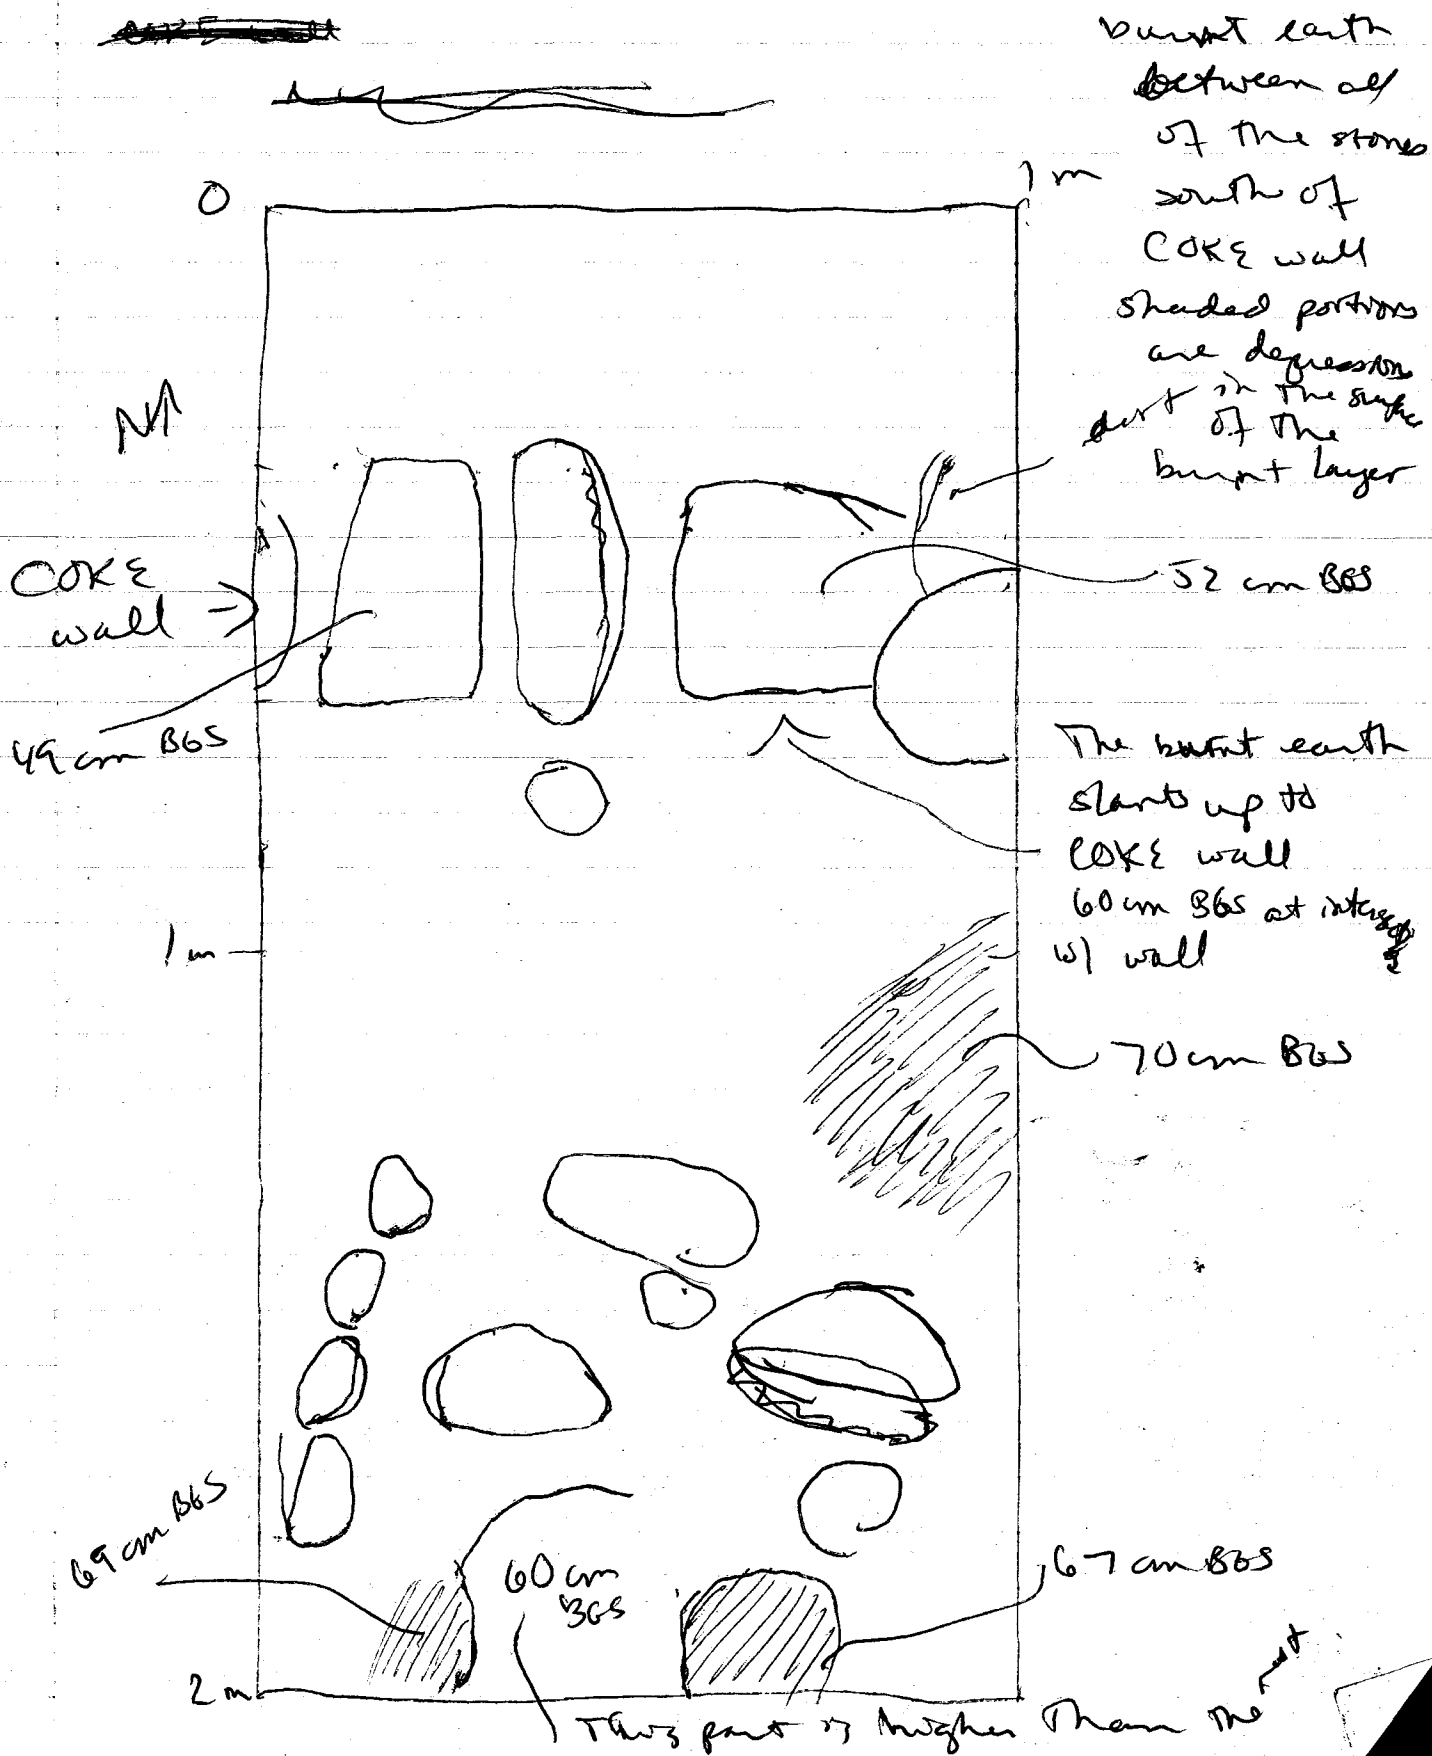 burnt earth
between all
of the stones
south of
COKE wall
shaded portions
are depressions
in the surface
of the
burnt layer
0
1 m
N
dirt
COKE
wall →
52 cm BGS
49 cm BGS
The burnt earth
slants up to
COKE wall
60 cm BGS at
w/ wall
1 m
70 cm BGS
69 cm BGS
60 cm
BGS
67 cm BGS
2 m
This part is higher than the rest